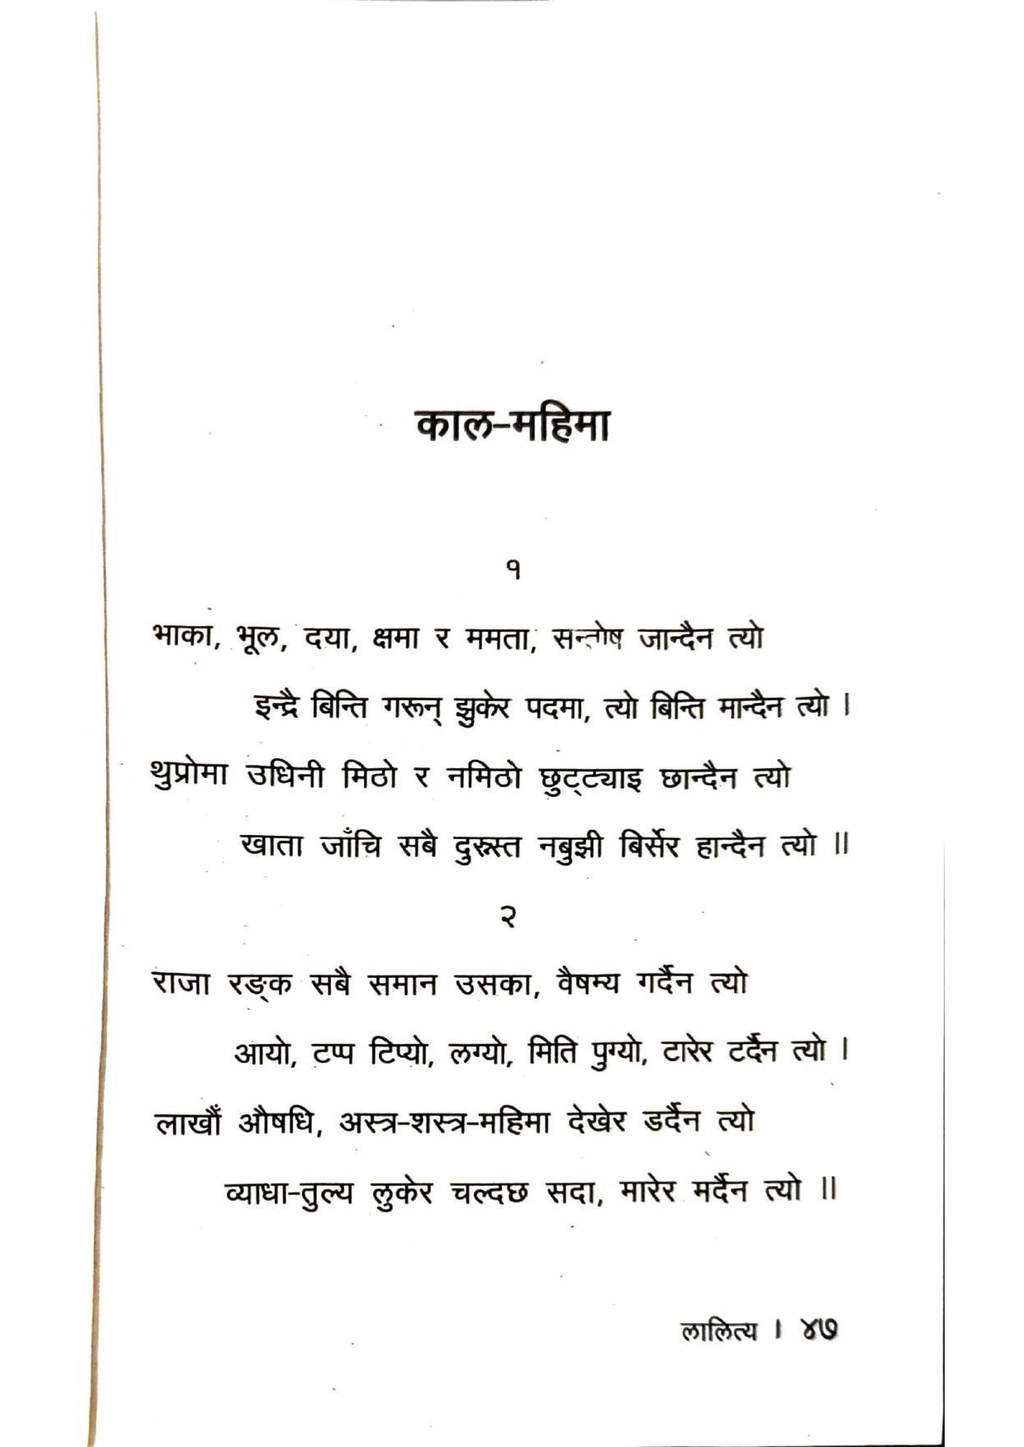 काल-महिमा
१
भाका, भूल, दया, क्षमा र ममता, सन्तोष जान्दैन त्यो
इन्द्रै बिन्ति गरून् झुकेर पदमा, त्यो बिन्ति मान्दैन त्यो ।
थुप्रोमा उधिनी मिठो र नमिठो छुट्ट्याइ छान्दैन त्यो
खाता जाँचि सबै दुरुस्त नबुझी बिर्सेर हान्दैन त्यो ॥
२
राजा रङ्क सबै समान उसका, वैषम्य गर्दैन त्यो
आयो, टप्प टिप्यो, लग्यो, मिति पुग्यो, टारेर टर्दैन त्यो ।
लाखौँ औषधि, अस्त्र-शस्त्र-महिमा देखेर डर्दैन त्यो
व्याधा-तुल्य लुकेर चल्दछ सदा, मारेर मर्दैन त्यो ॥
लालित्य । ४७